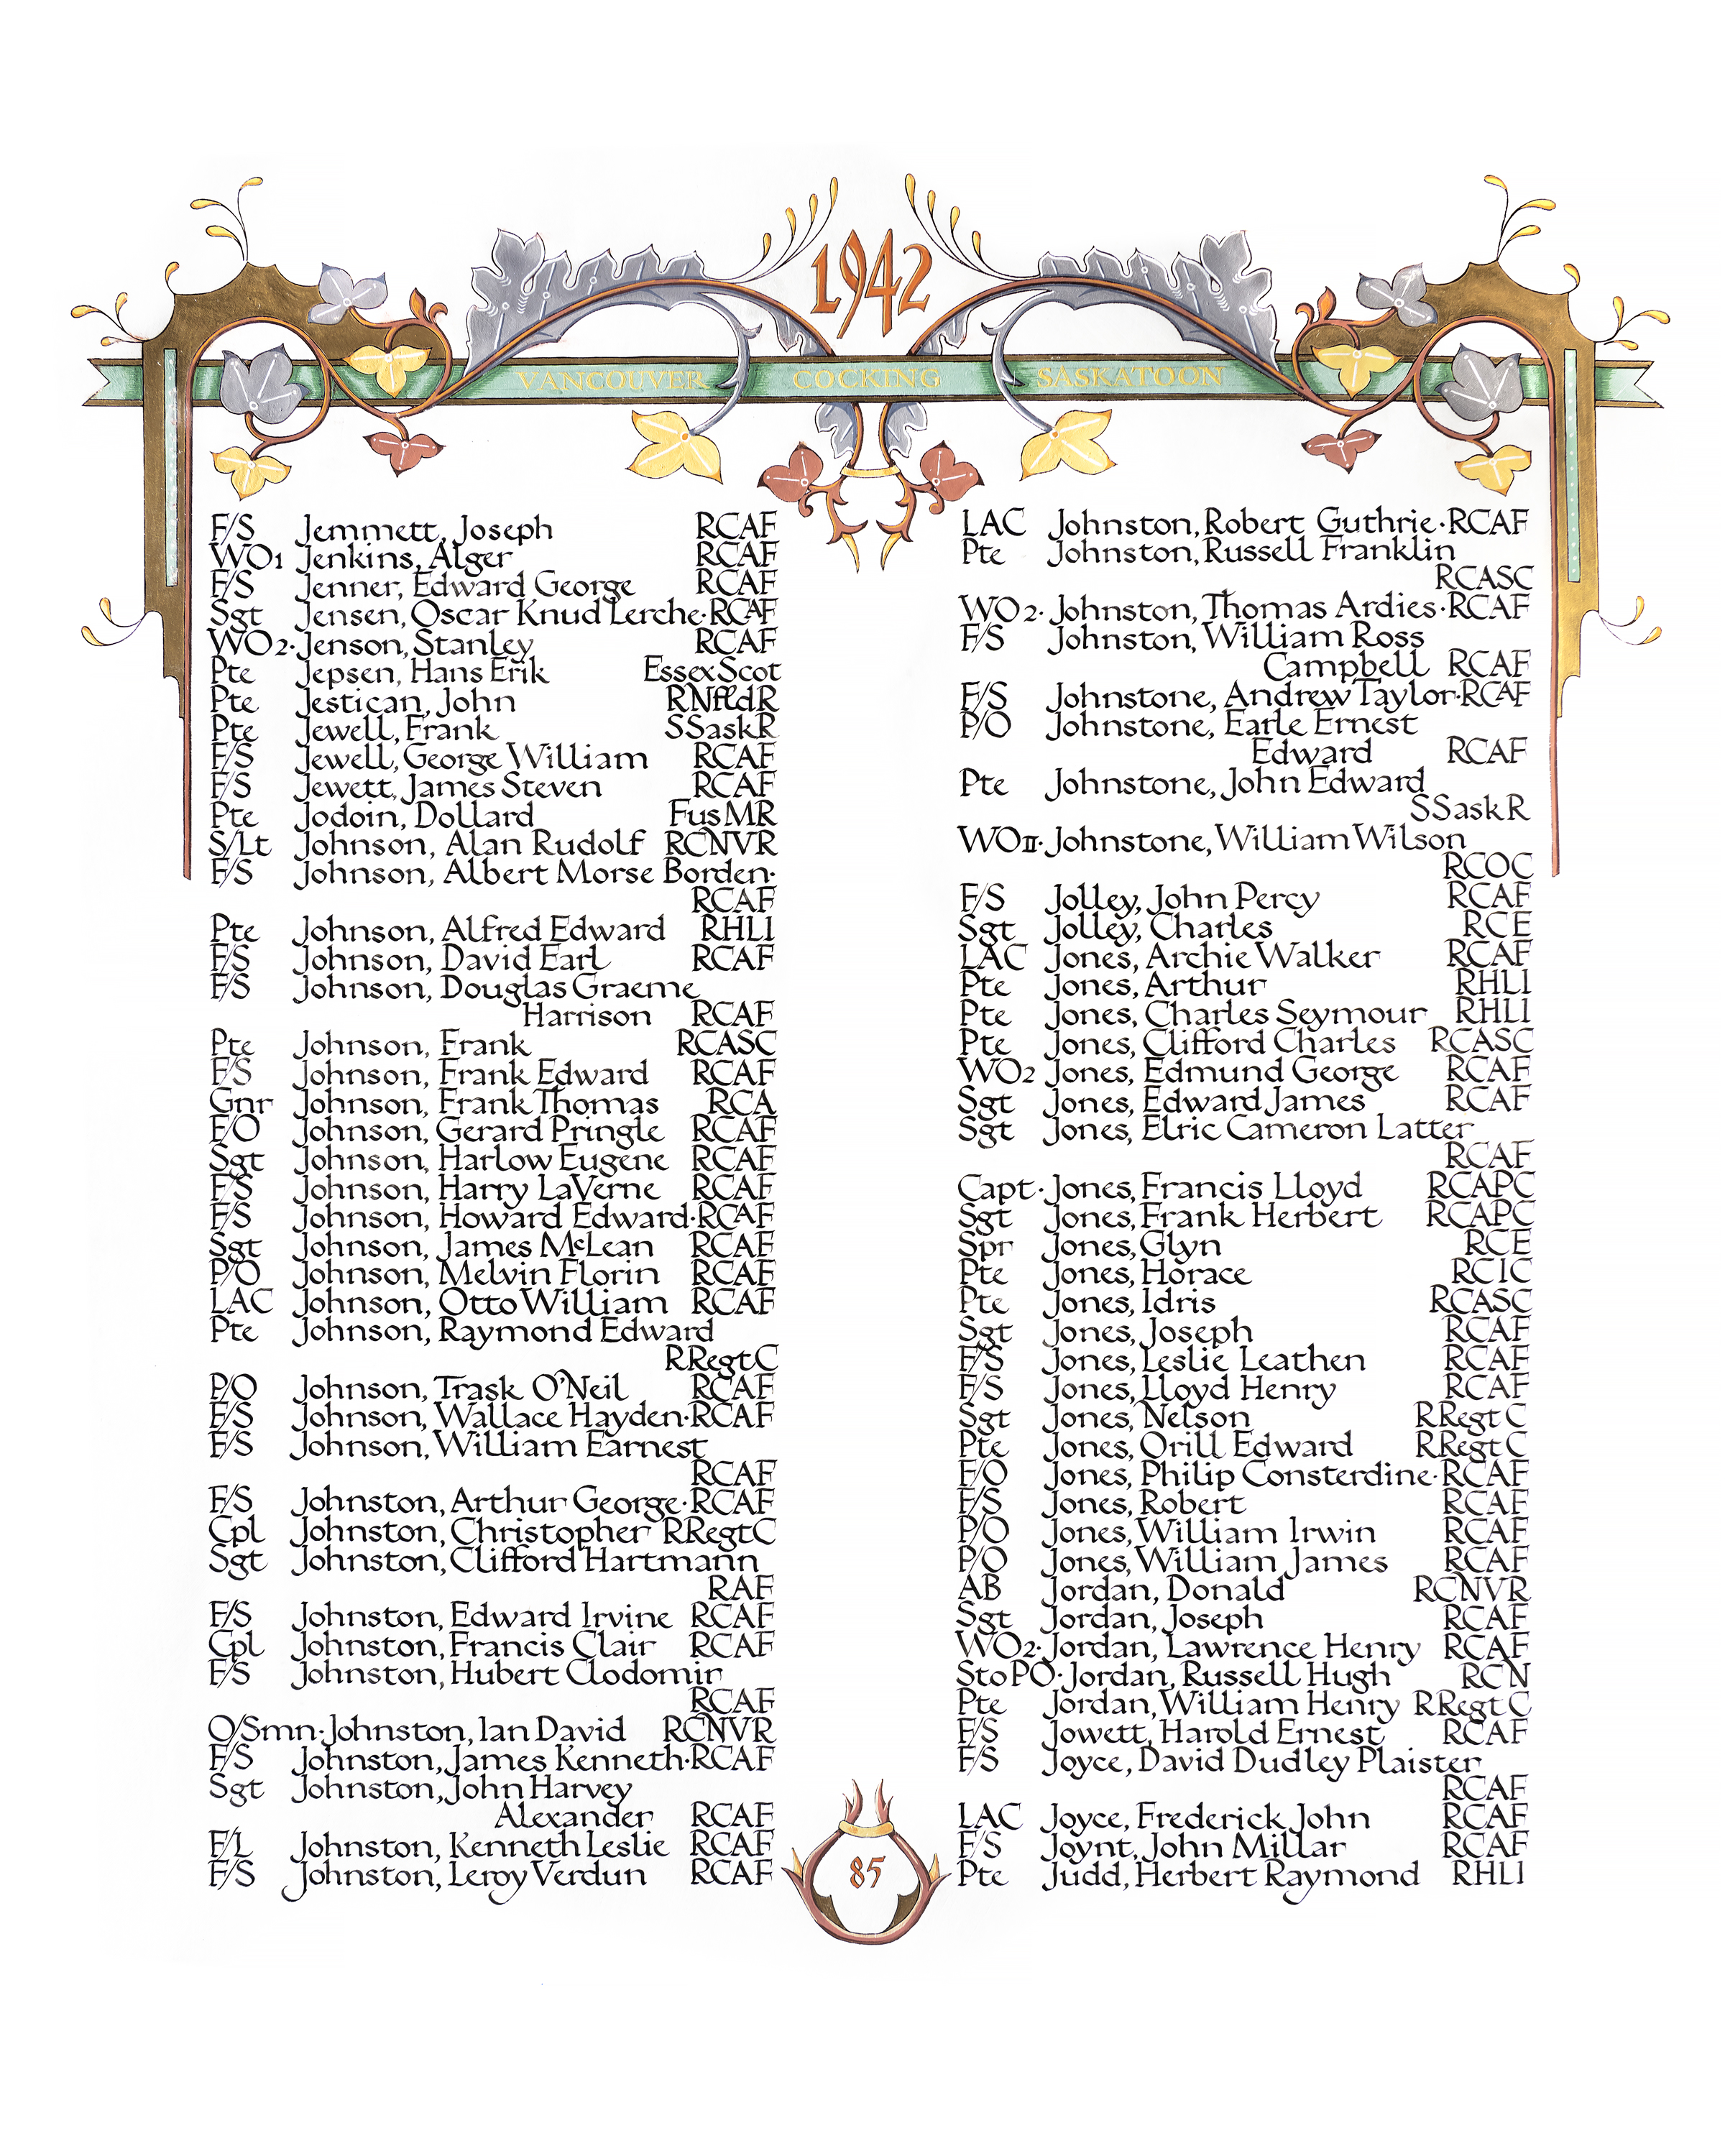 1942
VANCOUVER COCKING SASKATOON
F/S Jemmett, Joseph RCAF
WO1 Jenkins, Alger RCAF
F/S Jenner, Edward George RCAF
Sgt Jensen, Oscar Knud Lerche·RCAF
WO2·Jenson, Stanley RCAF
Pte Jepsen, Hans Erik Essex Scot
Pte Jestican, John RNfldR
Pte Jewell, Frank SSaskR
F/S Jewell, George William RCAF
F/S Jewett, James Steven RCAF
Pte Jodoin, Dollard Fus MR
S/Lt Johnson, Alan Rudolf RCNVR
F/S Johnson, Albert Morse Borden·
RCAF
Pte Johnson, Alfred Edward RHLI
F/S Johnson, David Earl RCAF
F/S Johnson, Douglas Graeme
Harrison RCAF
Pte Johnson, Frank RCASC
F/S Johnson, Frank Edward RCAF
Gnr Johnson, Frank Thomas RCA
F/O Johnson, Gerard Pringle RCAF
Sgt Johnson, Harlow Eugene RCAF
F/S Johnson, Harry LaVerne RCAF
F/S Johnson, Howard Edward·RCAF
Sgt Johnson, James McLean RCAF
P/O Johnson, Melvin Florin RCAF
LAC Johnson, Otto William RCAF
Pte Johnson, Raymond Edward
RRegtC
P/O Johnson, Trask O'Neil RCAF
F/S Johnson, Wallace Hayden·RCAF
F/S Johnson, William Earnest
RCAF
F/S Johnston, Arthur George·RCAF
Cpl Johnston, Christopher RRegtC
Sgt Johnston, Clifford Hartmann
RAF
F/S Johnston, Edward Irvine RCAF
Cpl Johnston, Francis Clair RCAF
F/S Johnston, Hubert Clodomir
RCAF
O/Smn·Johnston, Ian David RCNVR
F/S Johnston, James Kenneth·RCAF
Sgt Johnston, John Harvey
Alexander RCAF
F/L Johnston, Kenneth Leslie RCAF
F/S Johnston, Leroy Verdun RCAF
LAC Johnston, Robert Guthrie·RCAF
Pte Johnston, Russell Franklin
RCASC
WO2·Johnston, Thomas Ardies·RCAF
F/S Johnston, William Ross
Campbell RCAF
F/S Johnstone, Andrew Taylor·RCAF
P/O Johnstone, Earle Ernest
Edward RCAF
Pte Johnstone, John Edward
SSaskR
WOII·Johnstone, William Wilson
RCOC
F/S Jolley, John Percy RCAF
Sgt Jolley, Charles RCE
LAC Jones, Archie Walker RCAF
Pte Jones, Arthur RHLI
Pte Jones, Charles Seymour RHLI
Pte Jones, Clifford Charles RCASC
WO2 Jones, Edmund George RCAF
Sgt Jones, Edward James RCAF
Sgt Jones, Elric Cameron Latter
RCAF
Capt·Jones, Francis Lloyd RCAPC
Sgt Jones, Frank Herbert RCAPC
Spr Jones, Glyn RCE
Pte Jones, Horace RCIC
Pte Jones, Idris RCASC
Sgt Jones, Joseph RCAF
F/S Jones, Leslie Leathen RCAF
F/S Jones, Lloyd Henry RCAF
Sgt Jones, Nelson RRegtC
Pte Jones, Orill Edward RRegtC
F/O Jones, Philip Consterdine·RCAF
F/S Jones, Robert RCAF
P/O Jones, William Irwin RCAF
P/O Jones, William James RCAF
AB Jordan, Donald RCNVR
Sgt Jordan, Joseph RCAF
WO2·Jordan, Lawrence Henry RCAF
Sto PO·Jordan, Russell Hugh RCN
Pte Jordan, William Henry RRegtC
F/S Jowett, Harold Ernest RCAF
F/S Joyce, David Dudley Plaister
RCAF
LAC Joyce, Frederick John RCAF
F/S Joynt, John Millar RCAF
Pte Judd, Herbert Raymond RHLI
85